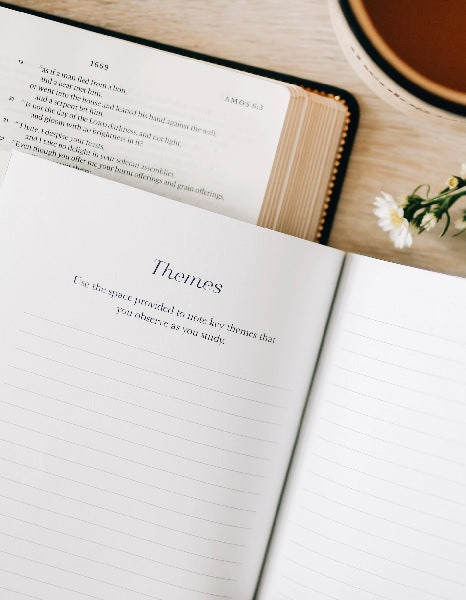 1669
AMOS 6:3
19 "as if a man fled from a lion,
and a bear met him,
or went into the house and leaned his hand against the wall,
and a serpent bit him.
20 "Is not the day of the LORD darkness, and not light,
and gloom with no brightness in it?
21 "I hate, I despise your feasts,
and I take no delight in your solemn assemblies.
"Even though you offer me your burnt offerings and grain offerings,
Themes
Use the space provided to note key themes that
you observe as you study.